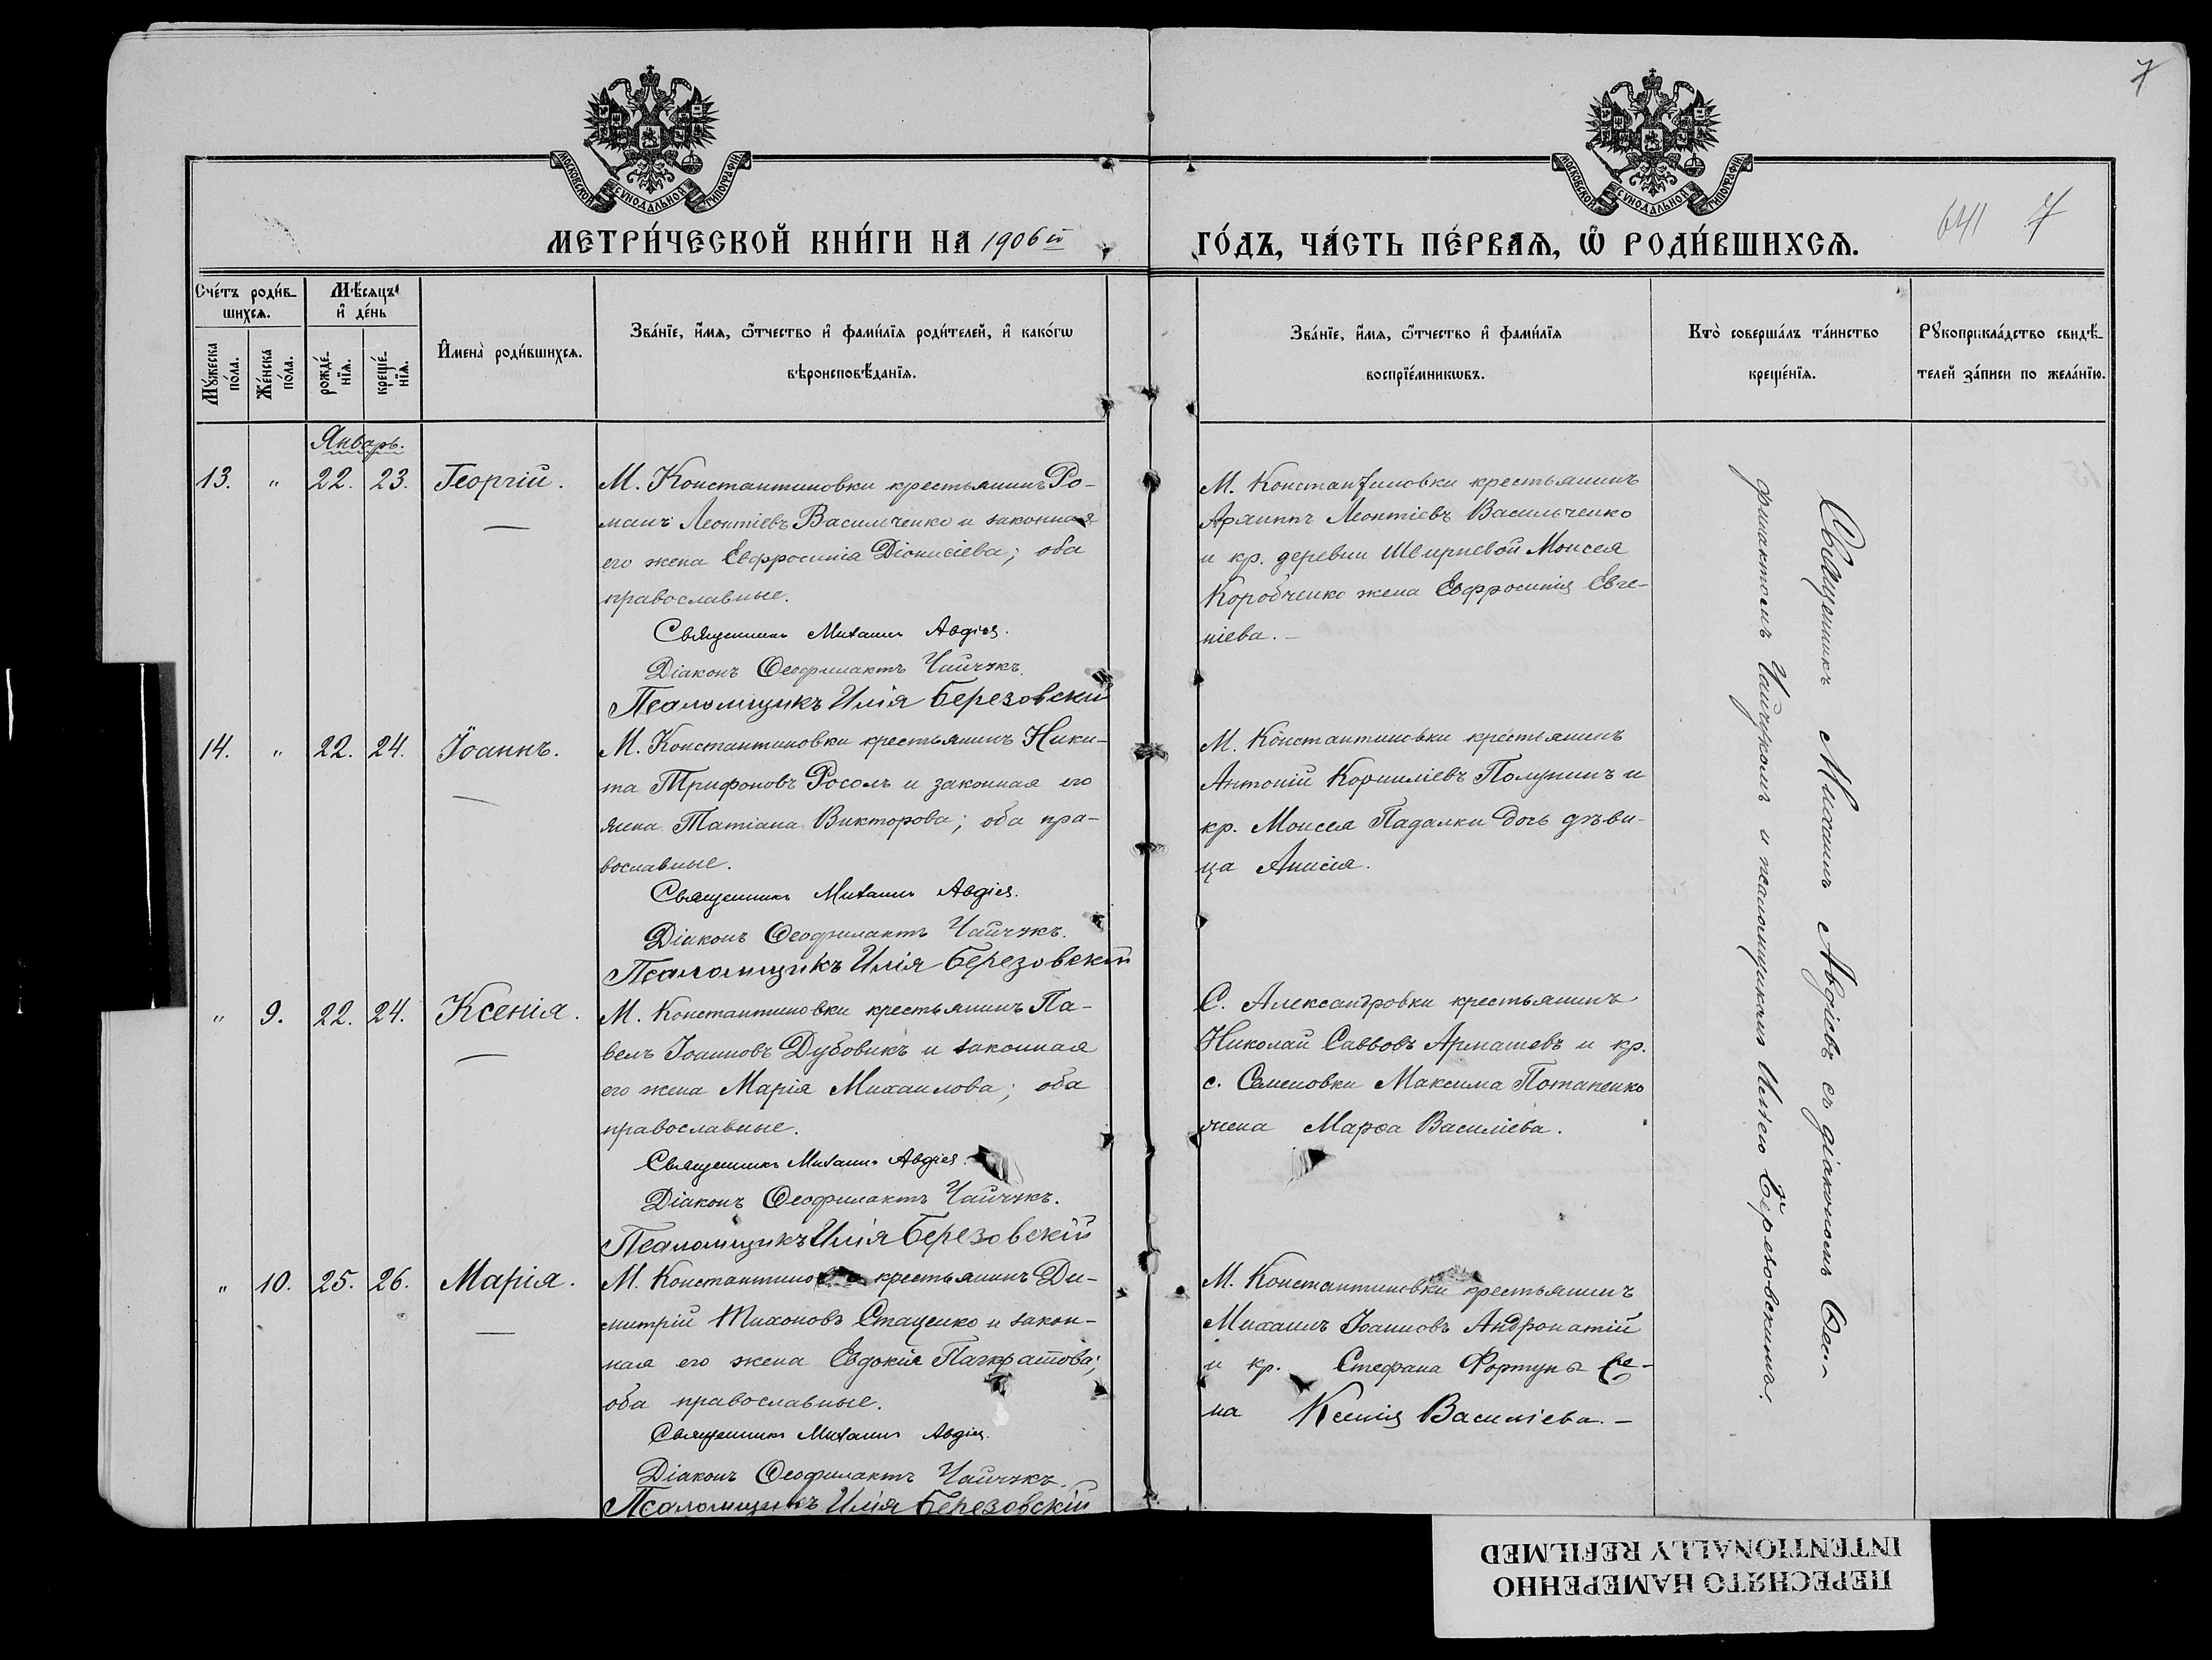 МОСКОВСКОЙ СѴНОДАЛЬНОЙ ТИПОГРАФІИ
МОСКОВСКОЙ СѴНОДАЛЬНОЙ ТИПОГРАФІИ
7
641 7
МЕТРИ́ЧЕСКОЙ КНИ́ГИ НА 1906й
ГО́ДЪ, ЧА́СТЬ ПЕ́РВАѦ, Ѽ РОДИ́ВШИХСѦ.
Сче́тъ роди́в-
шихсѧ.
Мѣ́сяцъ
и҆ де́нь
Мꙋ́жеска
по́ла.
Же́нска
по́ла.
рожде́-
нїѧ.
креще́-
нїѧ.
И҆мена̀ роди́вшихсѧ.
Зва́нїе, и҆́мѧ, ѻ҆́тчество и҆ фами́лїѧ роди́телей, и҆ како́гѡ
вѣроисповѣ́данїѧ.
Зва́нїе, и҆́мѧ, ѻ҆́тчество и҆ фами́лїѧ
воспрїе́мникѡвъ.
Кто̀ соверша́лъ та́инство
креще́нїѧ.
Рꙋкоприкла́дство свидѣ́-
телей за́писи по жела́нїю.
Январь.
13. " 22. 23. Георгій.
М. Константиновки крестьянинъ Ро-
манъ Леонтіевъ Васильченко и законная
его жена Евфросинія Діонисіева; оба
православные.
Священникъ Михаилъ Авдіев.
Діаконъ Ѳеофилактъ Чайчукъ.
Псаломщикъ Илія Березовскій
М. Константиновки крестьянинъ
Архиппъ Леонтіевъ Васильченко
и кр. деревни Швырневой Моисея
Коробченко жена Евфросинія Евге-
ніева. –
14. " 22. 24. Іоаннъ.
М. Константиновки крестьянинъ Ники-
та Трифоновъ Росолъ и законная его
жена Татіана Викторова; оба пра-
вославные.
Священникъ Михаилъ Авдіев.
Діаконъ Ѳеофилактъ Чайчукъ.
Псаломщикъ Илія Березовскій
М. Константиновки крестьянинъ
Антоній Корниліевъ Полунинъ и
кр. Моисея Падалки дочь дѣви-
ца Анисія.
" 9. 22. 24. Ксенія.
М. Константиновки крестьянинъ Па-
велъ Іоанновъ Дубовикъ и законная
его жена Марія Михаилова; оба
православные.
Священникъ Михаилъ Авдіев.
Діаконъ Ѳеофилактъ Чайчукъ.
Псаломщикъ Илія Березовскій
С. Александровки крестьянинъ
Николай Саввовъ Армашевъ и кр.
с. Семеновки Максима Потапенко
жена Марѳа Василіева.
" 10. 25. 26. Марія.
М. Константиновки крестьянинъ Ди-
митрій Тихоновъ Стаценко и закон-
ная его жена Евдокія Панкратова;
оба православные.
Священникъ Михаилъ Авдіев.
Діаконъ Ѳеофилактъ Чайчукъ.
Псаломщикъ Илія Березовскій
М. Константиновки крестьянинъ
Михаилъ Іоанновъ Андронатій
и кр. Стефана Фортуны же-
на Ксенія Василіева. –
Священникъ Михаилъ Авдіевъ съ діакономъ Ѳео-
филактомъ Чайчукомъ и псаломщикомъ Иліею Березовскимъ.
ПЕРЕСНЯТО НАМЕРЕННО
INTENTIONALLY REFILMED